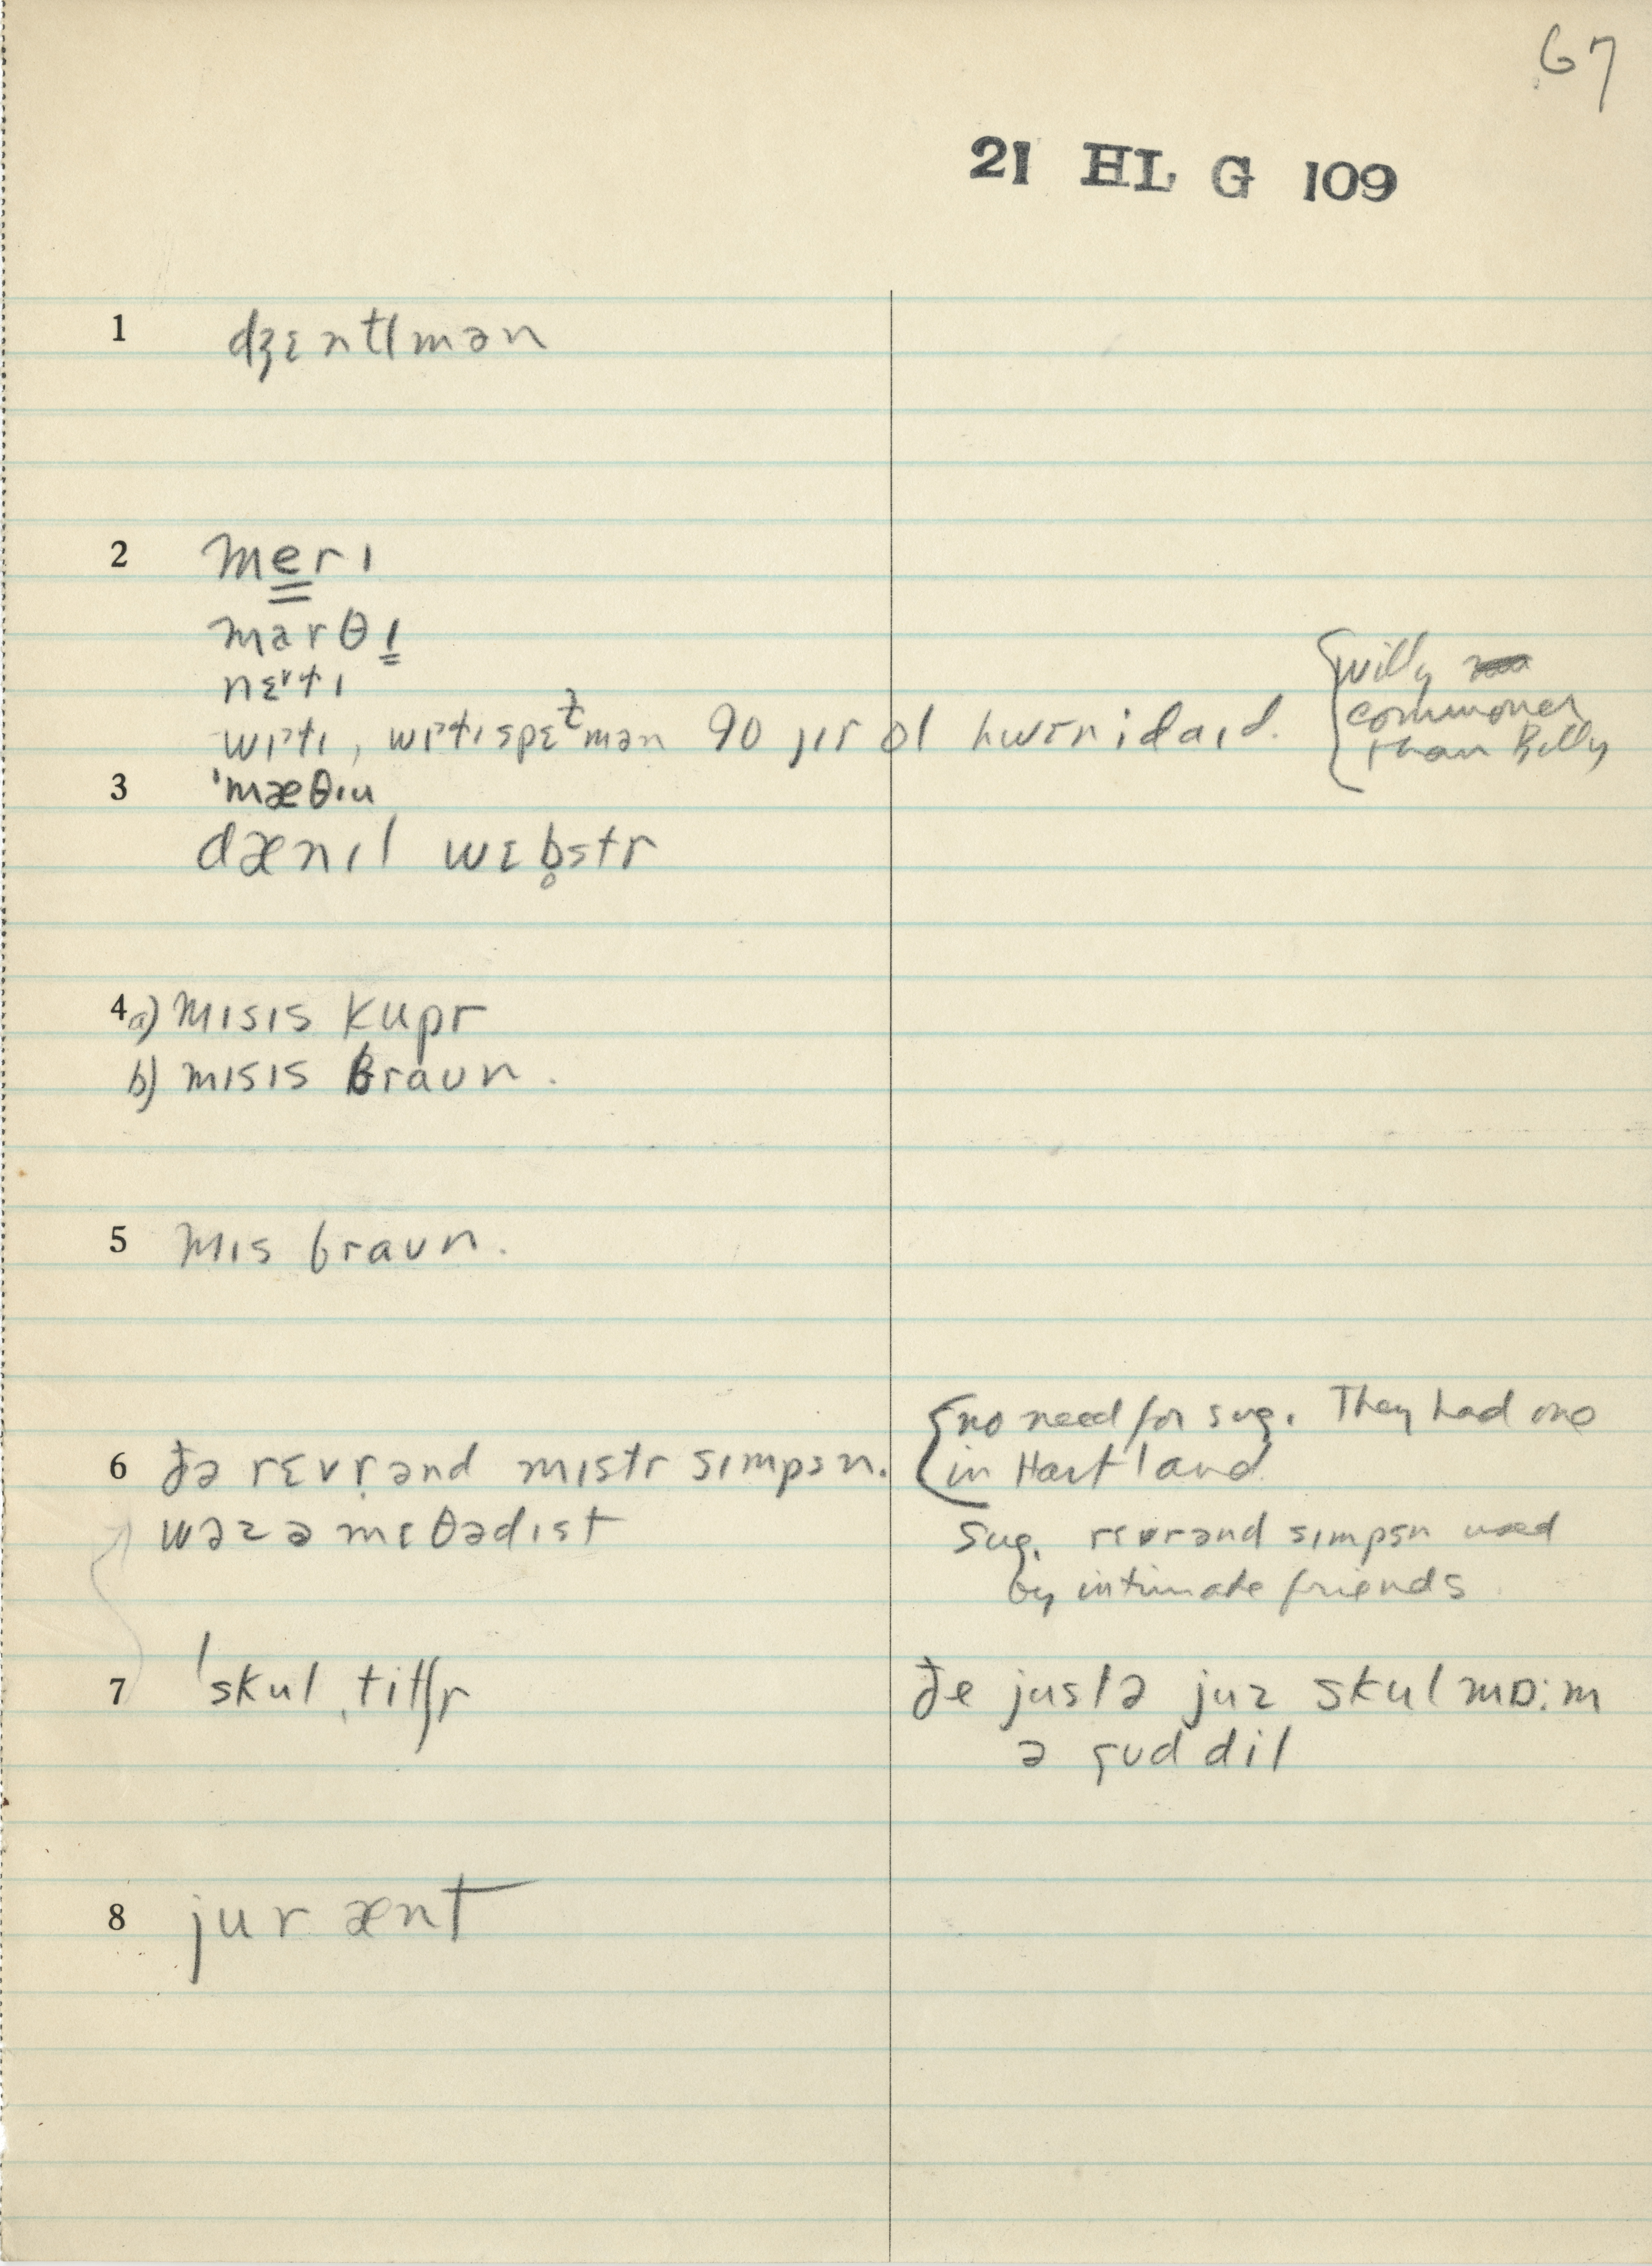 67
21 HL G 109
1 dʒɛntlmən
2 merɪ
marθɪ
wɪɫɪ, wɪɫɪspɛɫmən 90 jɪr ol hwɛn i daɪd.
{willy
commoner
than Billy
3 ˈmæθɪu
dænɪl wɛb̥str
4 a) mɪsɪs kupr
b) mɪsɪs braʊn.
5 mɪs braʊn.
6 ðə rɛvr̩ənd mɪstr sɪmpsn.
wəz ə mɛθədɪst
{no need for sug. They had one
in Hartland
Sug. rɛvrənd sɪmpsn used
by intimate friends
7 ˈskulˌtitʃr
ðe justə juz skulmɒ:m
ə gʊd dil
8 jur ænt